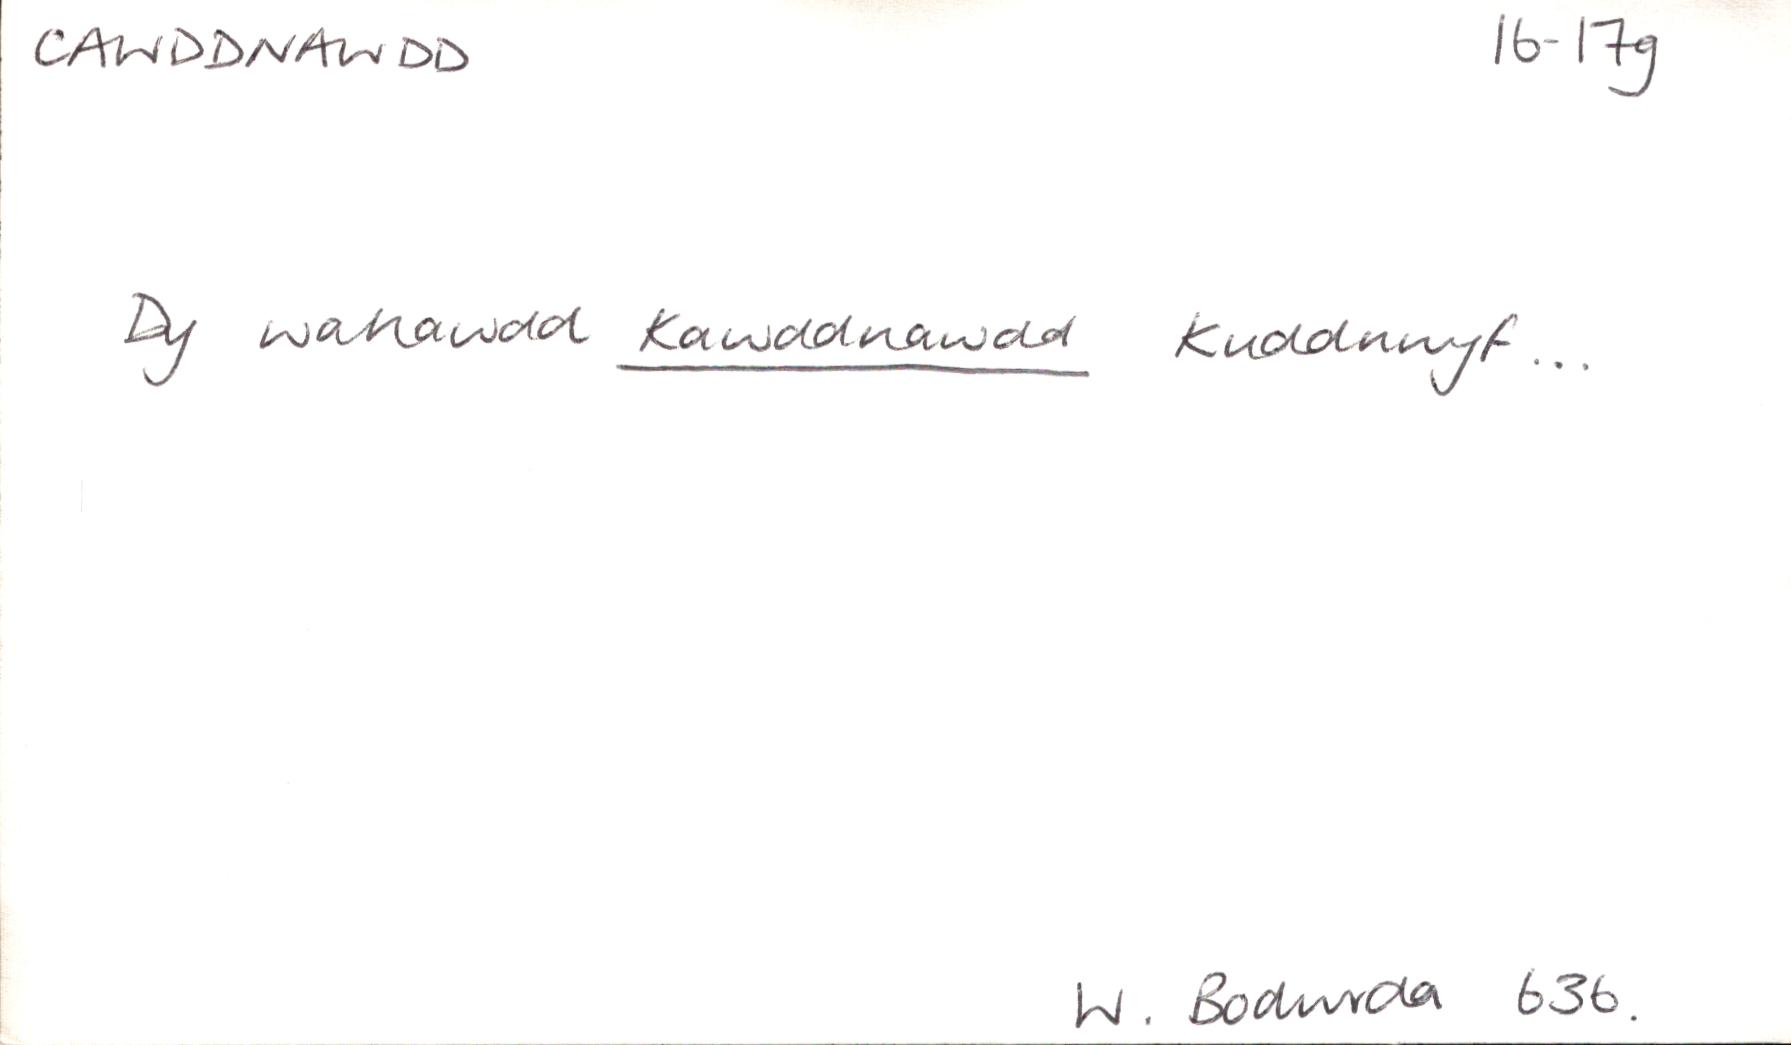 CAWDDNAWDD 16-17g
Dy wahawdd Kawddnawdd Kuddnwyf...
W. Bodwrda 636.